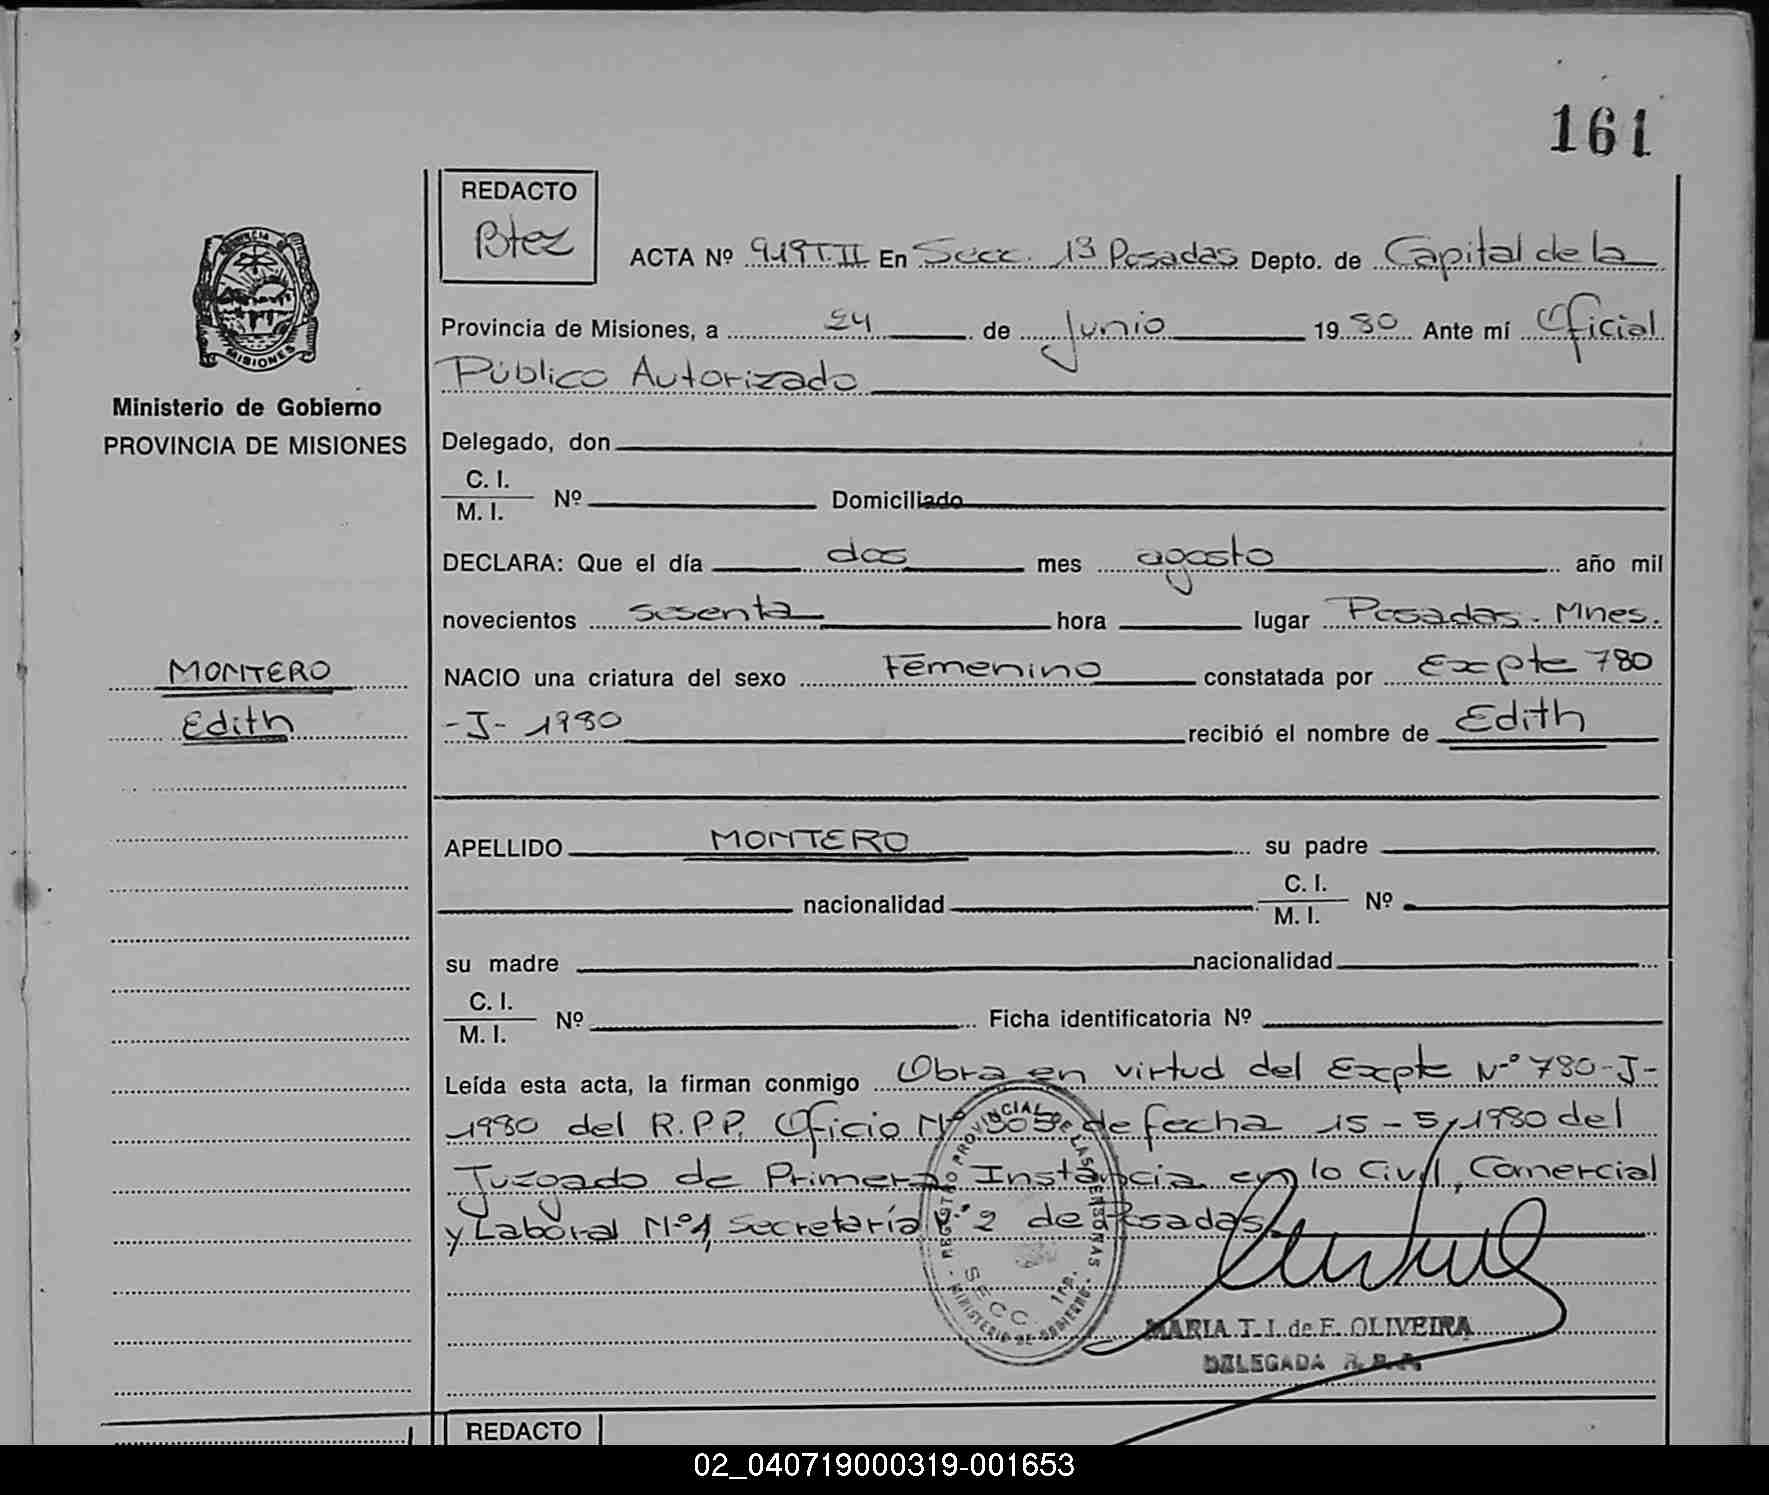 161
REDACTO
Btez
ACTA Nº 919 T.II En Secc. 1ª Posadas Depto. de Capital de la
Provincia de Misiones, a 24 de Junio 1980 Ante mí Oficial
Público Autorizado
PROVINCIA DE
MISIONES
Ministerio de Gobierno
PROVINCIA DE MISIONES
Delegado, don
C. I.
M. I. Nº Domiciliado
DECLARA: Que el día dos mes agosto año mil
novecientos sesenta hora lugar Posadas - Mnes.
MONTERO
Edith
NACIO una criatura del sexo Femenino constatada por Expte 780
-J- 1980 recibió el nombre de Edith
APELLIDO MONTERO su padre
nacionalidad C. I.
M. I. Nº
su madre nacionalidad
C. I.
M. I. Nº Ficha identificatoria Nº
Leída esta acta, la firman conmigo Obra en virtud del Expte Nº 780-J-
1980 del R.P.P. Oficio Nº de fecha 15-5-1980 del
Juzgado de Primera Instancia en lo Civil, Comercial
y Laboral Nº1, Secretaría Nº 2 de Posadas
REGISTRO PROVINCIAL DE LAS PERSONAS
MINISTERIO DE GOBIERNO
SECC 1ra.
MARIA T. I. de F. OLIVEIRA
DELEGADA R. P. P.
REDACTO
02_040719000319-001653